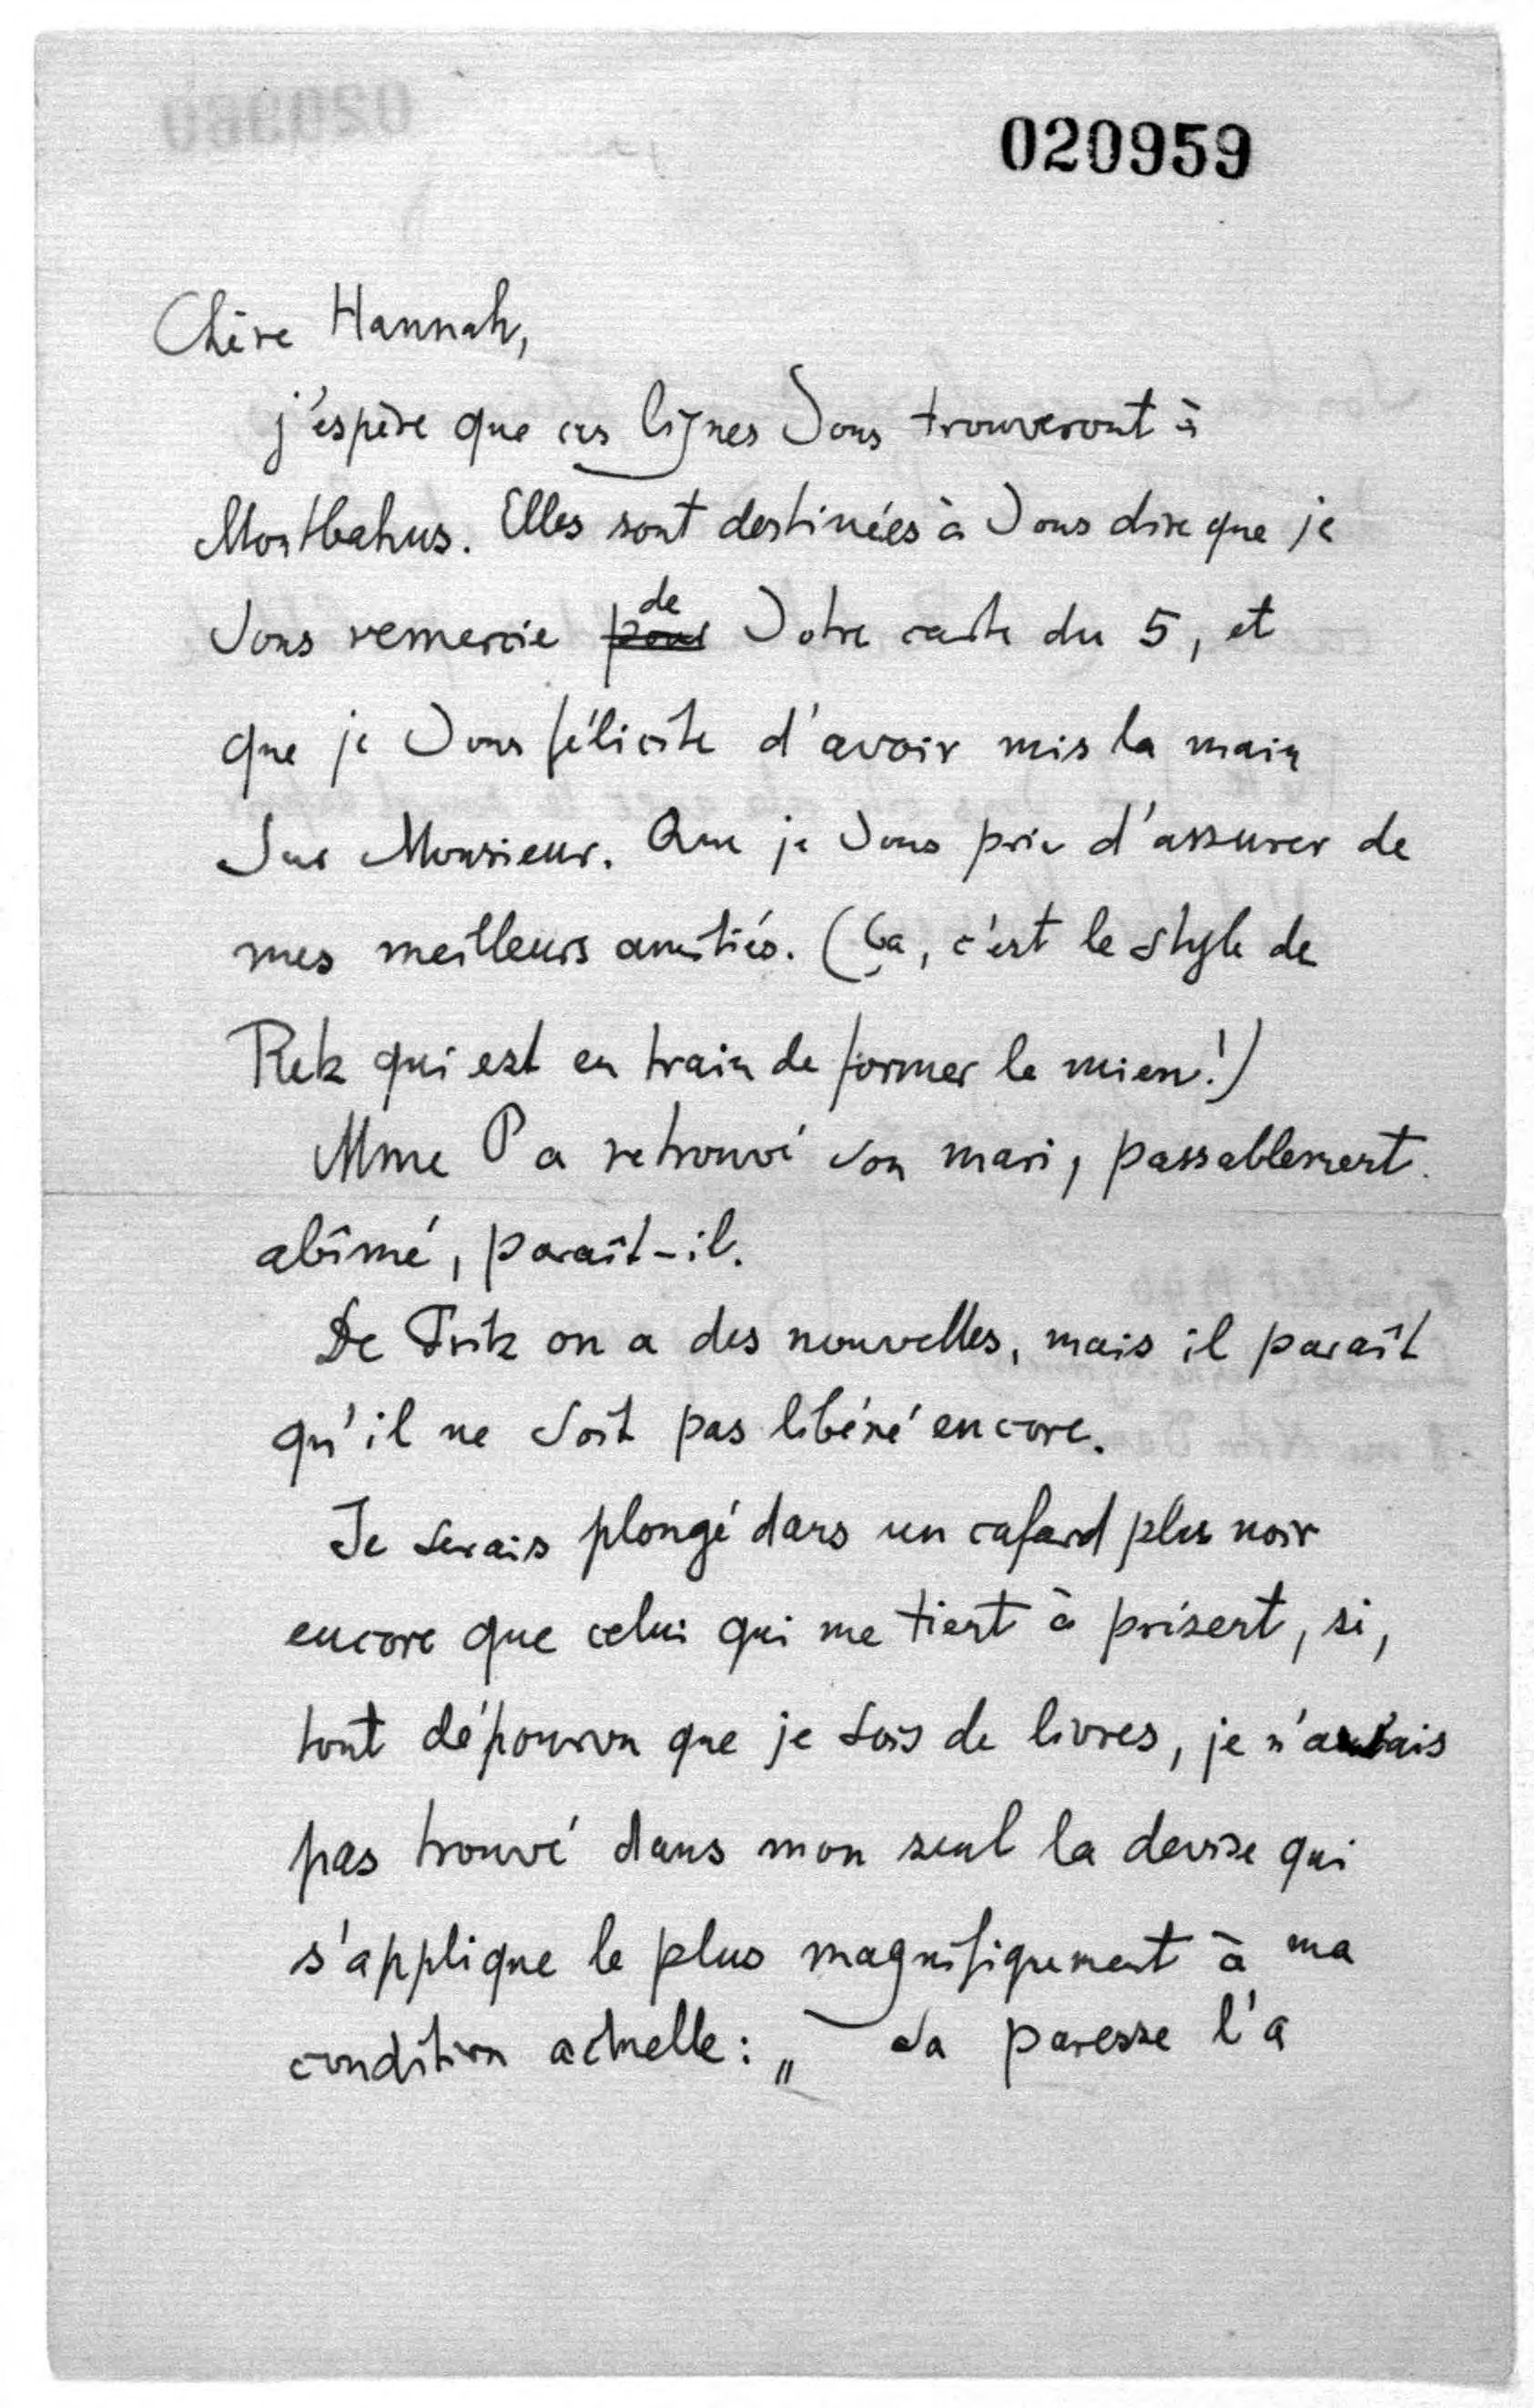 020959
Chère Hannah,
j'espère que ces lignes Vous trouveront à
Montbahus. Elles sont destinées à Vous dire que je
Vous remercie ~~pour~~ de Votre carte du 5, et
que je Vous félicite d'avoir mis la main
sur Monsieur. Que je Vous prie d'assurer de
mes meilleurs amitiés. (Ça, c'est le style de
qui est en train de former le mien!)
Mme P a retrouvé son mari, passablement
abîmé, paraît-il.
De Fritz on a des nouvelles, mais il paraît
qu'il ne soit pas libéré encore.
Je serais plongé dans un cafard plus noir
encore que celui qui me tient à présent, si,
tout dépourvu que je sois de livres, je n'avais
pas trouvé dans mon seul la devise qui
s'applique le plus magnifiquement à ma
condition actuelle: „ Sa paresse l'a